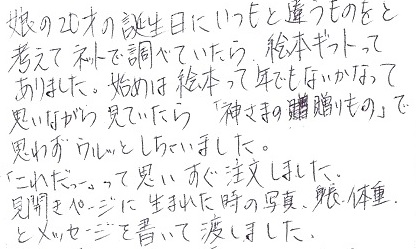 娘の20才の誕生日にいつもと違うものをと
考えてネットで調べていたら、絵本ギフトって
ありました。始めは絵本って年でもないかなって
思いながら見ていたら「神さまの贈りもの」で
思わずウルッとしちゃいました。
「これだっー」って思いすぐ注文しました。
見開きページに生まれた時の写真、身長、体重、
とメッセージを書いて渡しました。